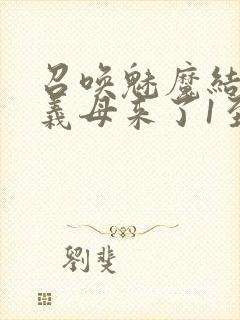 召唤魅魔结
義母来了1至
劉斐